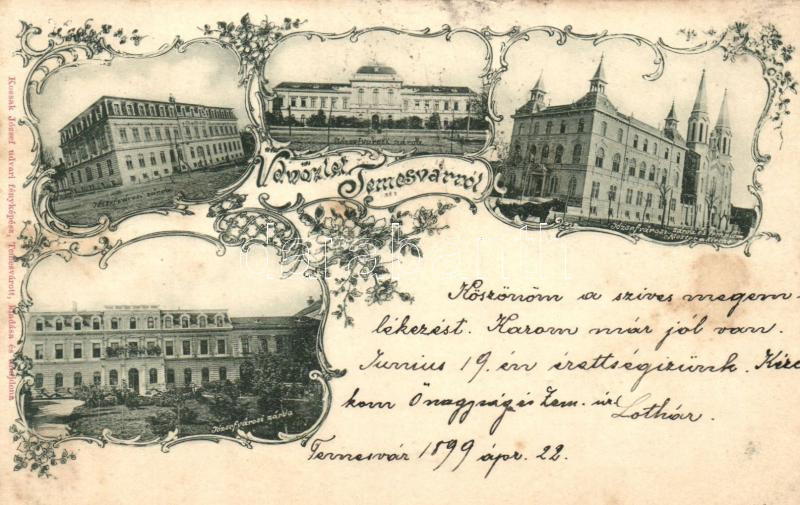 Kossak József udvari fényképész, Temesvárott, kiadása és tulajdona
Üdvözlet Temesvárról
Józsefvárosi zárda
darabanth
Köszönöm a szives megem-
lékezest. Karom már jól van.
Junius 19.én érettségizünk.
kom Őnagysága és
Lothár.
Temesvár 1899 ápr. 22.